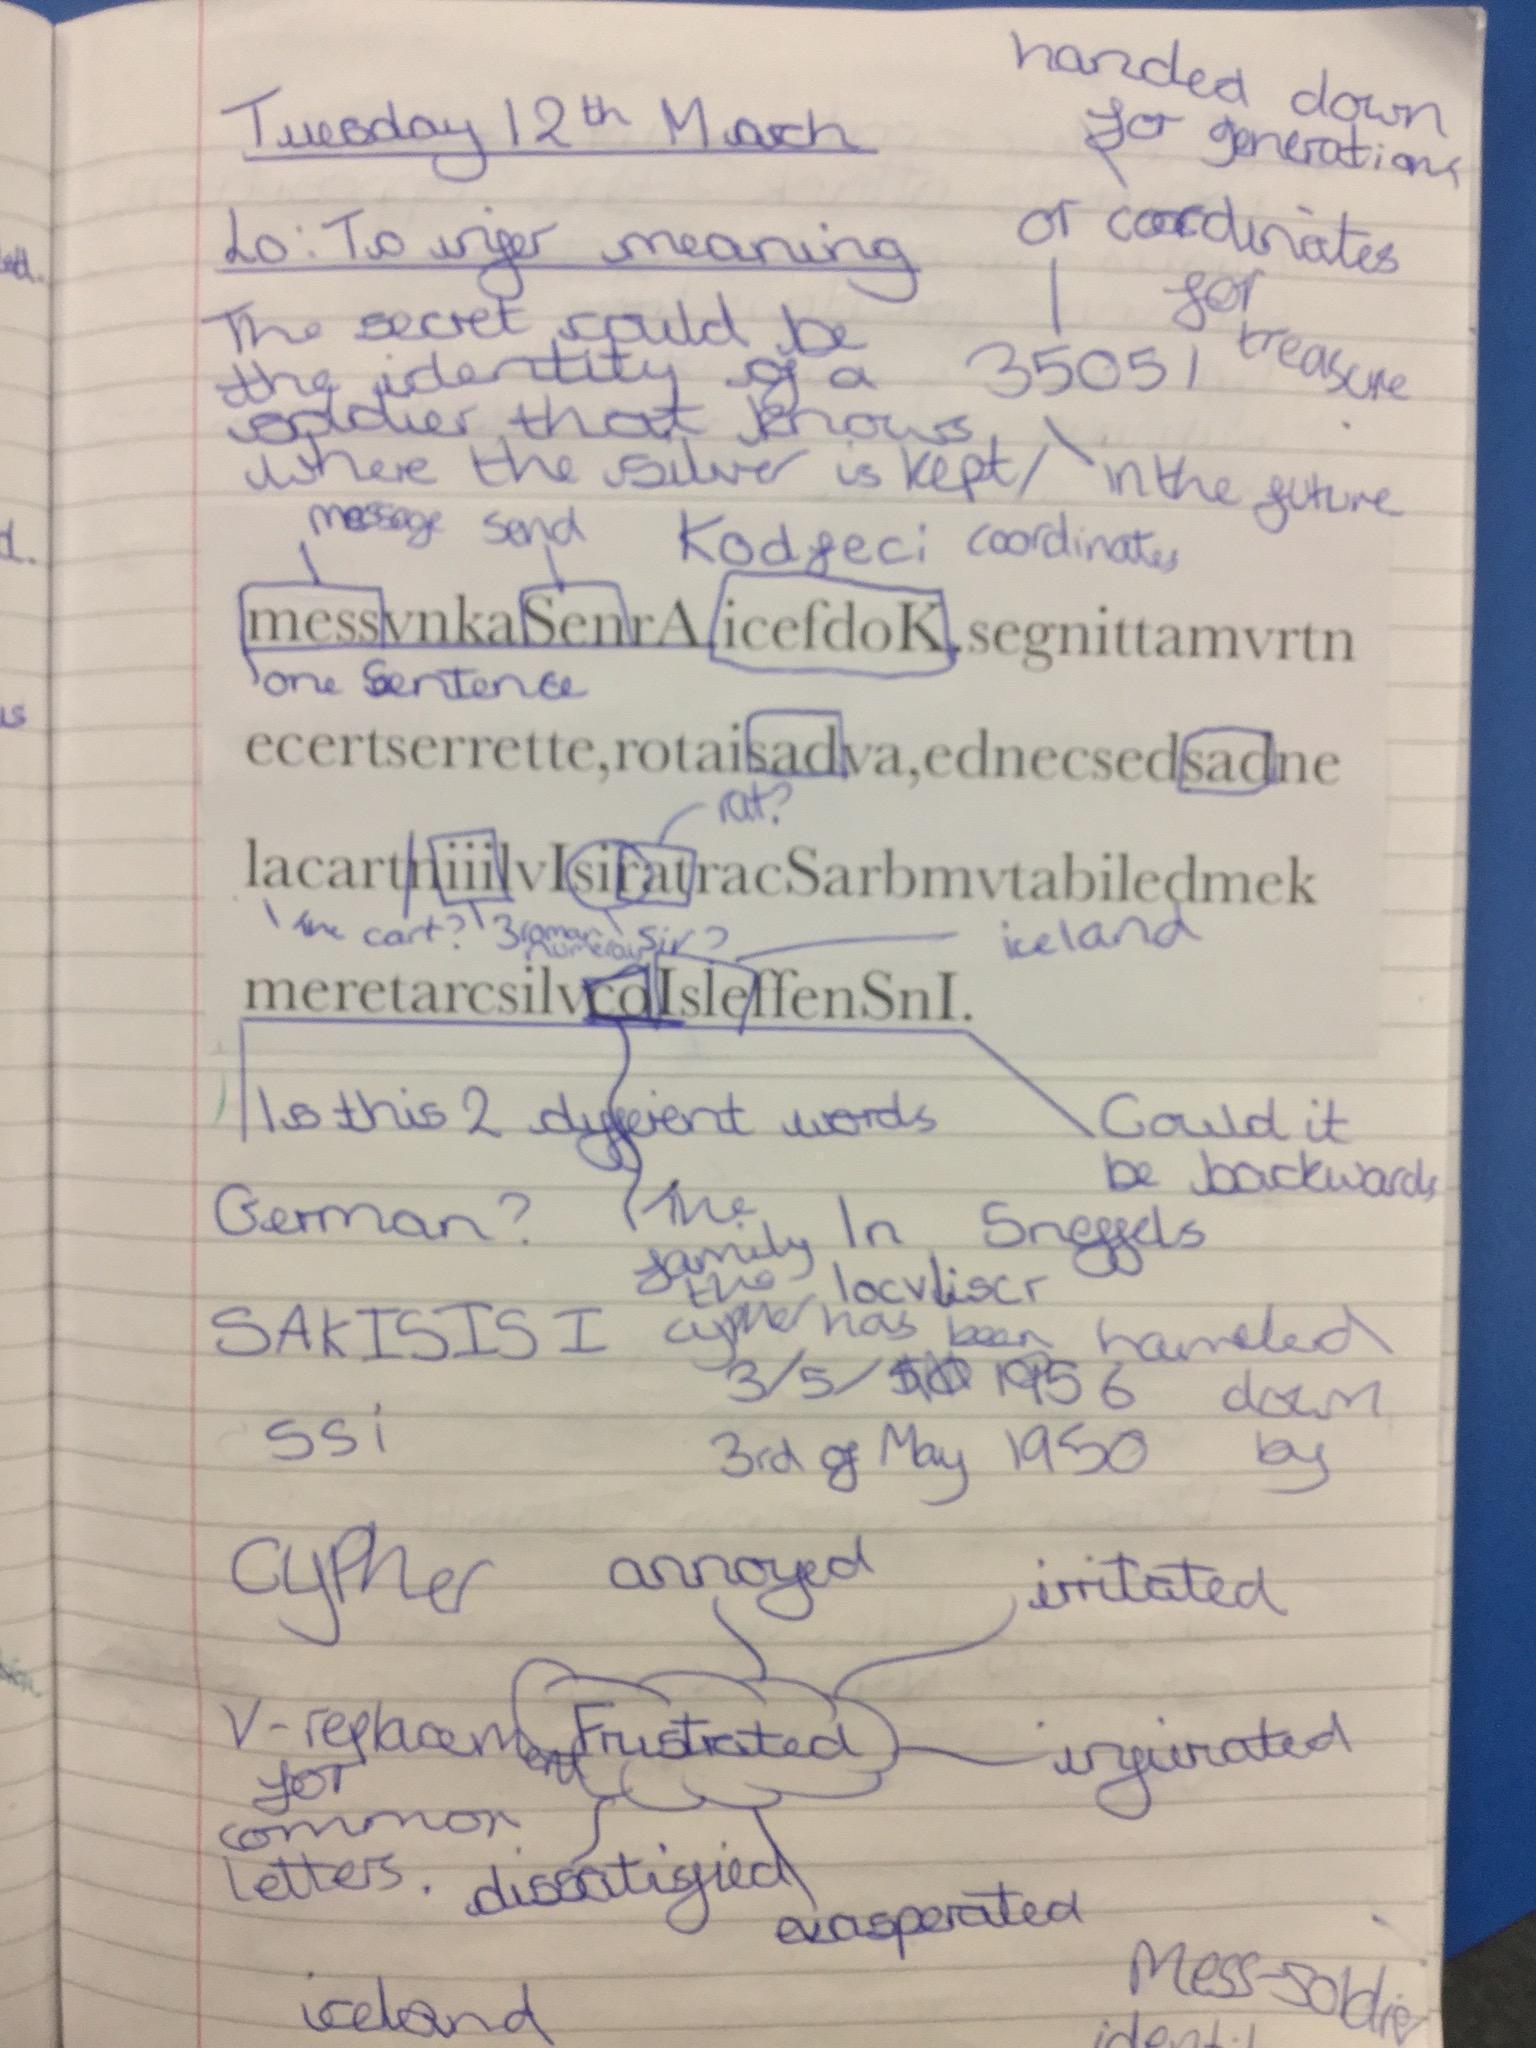 handed down
for generations
Tuesday 12th March
or coordinates
for
treasure
Lo: To infer meaning
The secret could be
the identity of a
soldier that knows
where the silver is kept/
35051
in the future
message send Kodfeci coordinates
messvnkaSenrA,icefdoK.segnittamvrtn
one Sentence
ecertserrette,rotaisadva,ednecsedsadne
rat?
lacartniiilvIsiratracSarbmvtabiledmek
the cart? 3 roman numerals Sir? iceland
meretarcsilvcoIsleffenSnI.
Is this 2 different words
Could it
be backwards
German?
the
family
the
In Sneffels
SAKISISI
cypher has been handed
down
by
3/5/ 1956
ssi
3rd of May 1950
Cypher annoyed irritated
V-replacement
for
common
letters.
Frustrated
infurated
dissatisfied
exasperated
iceland
Mess-soldier